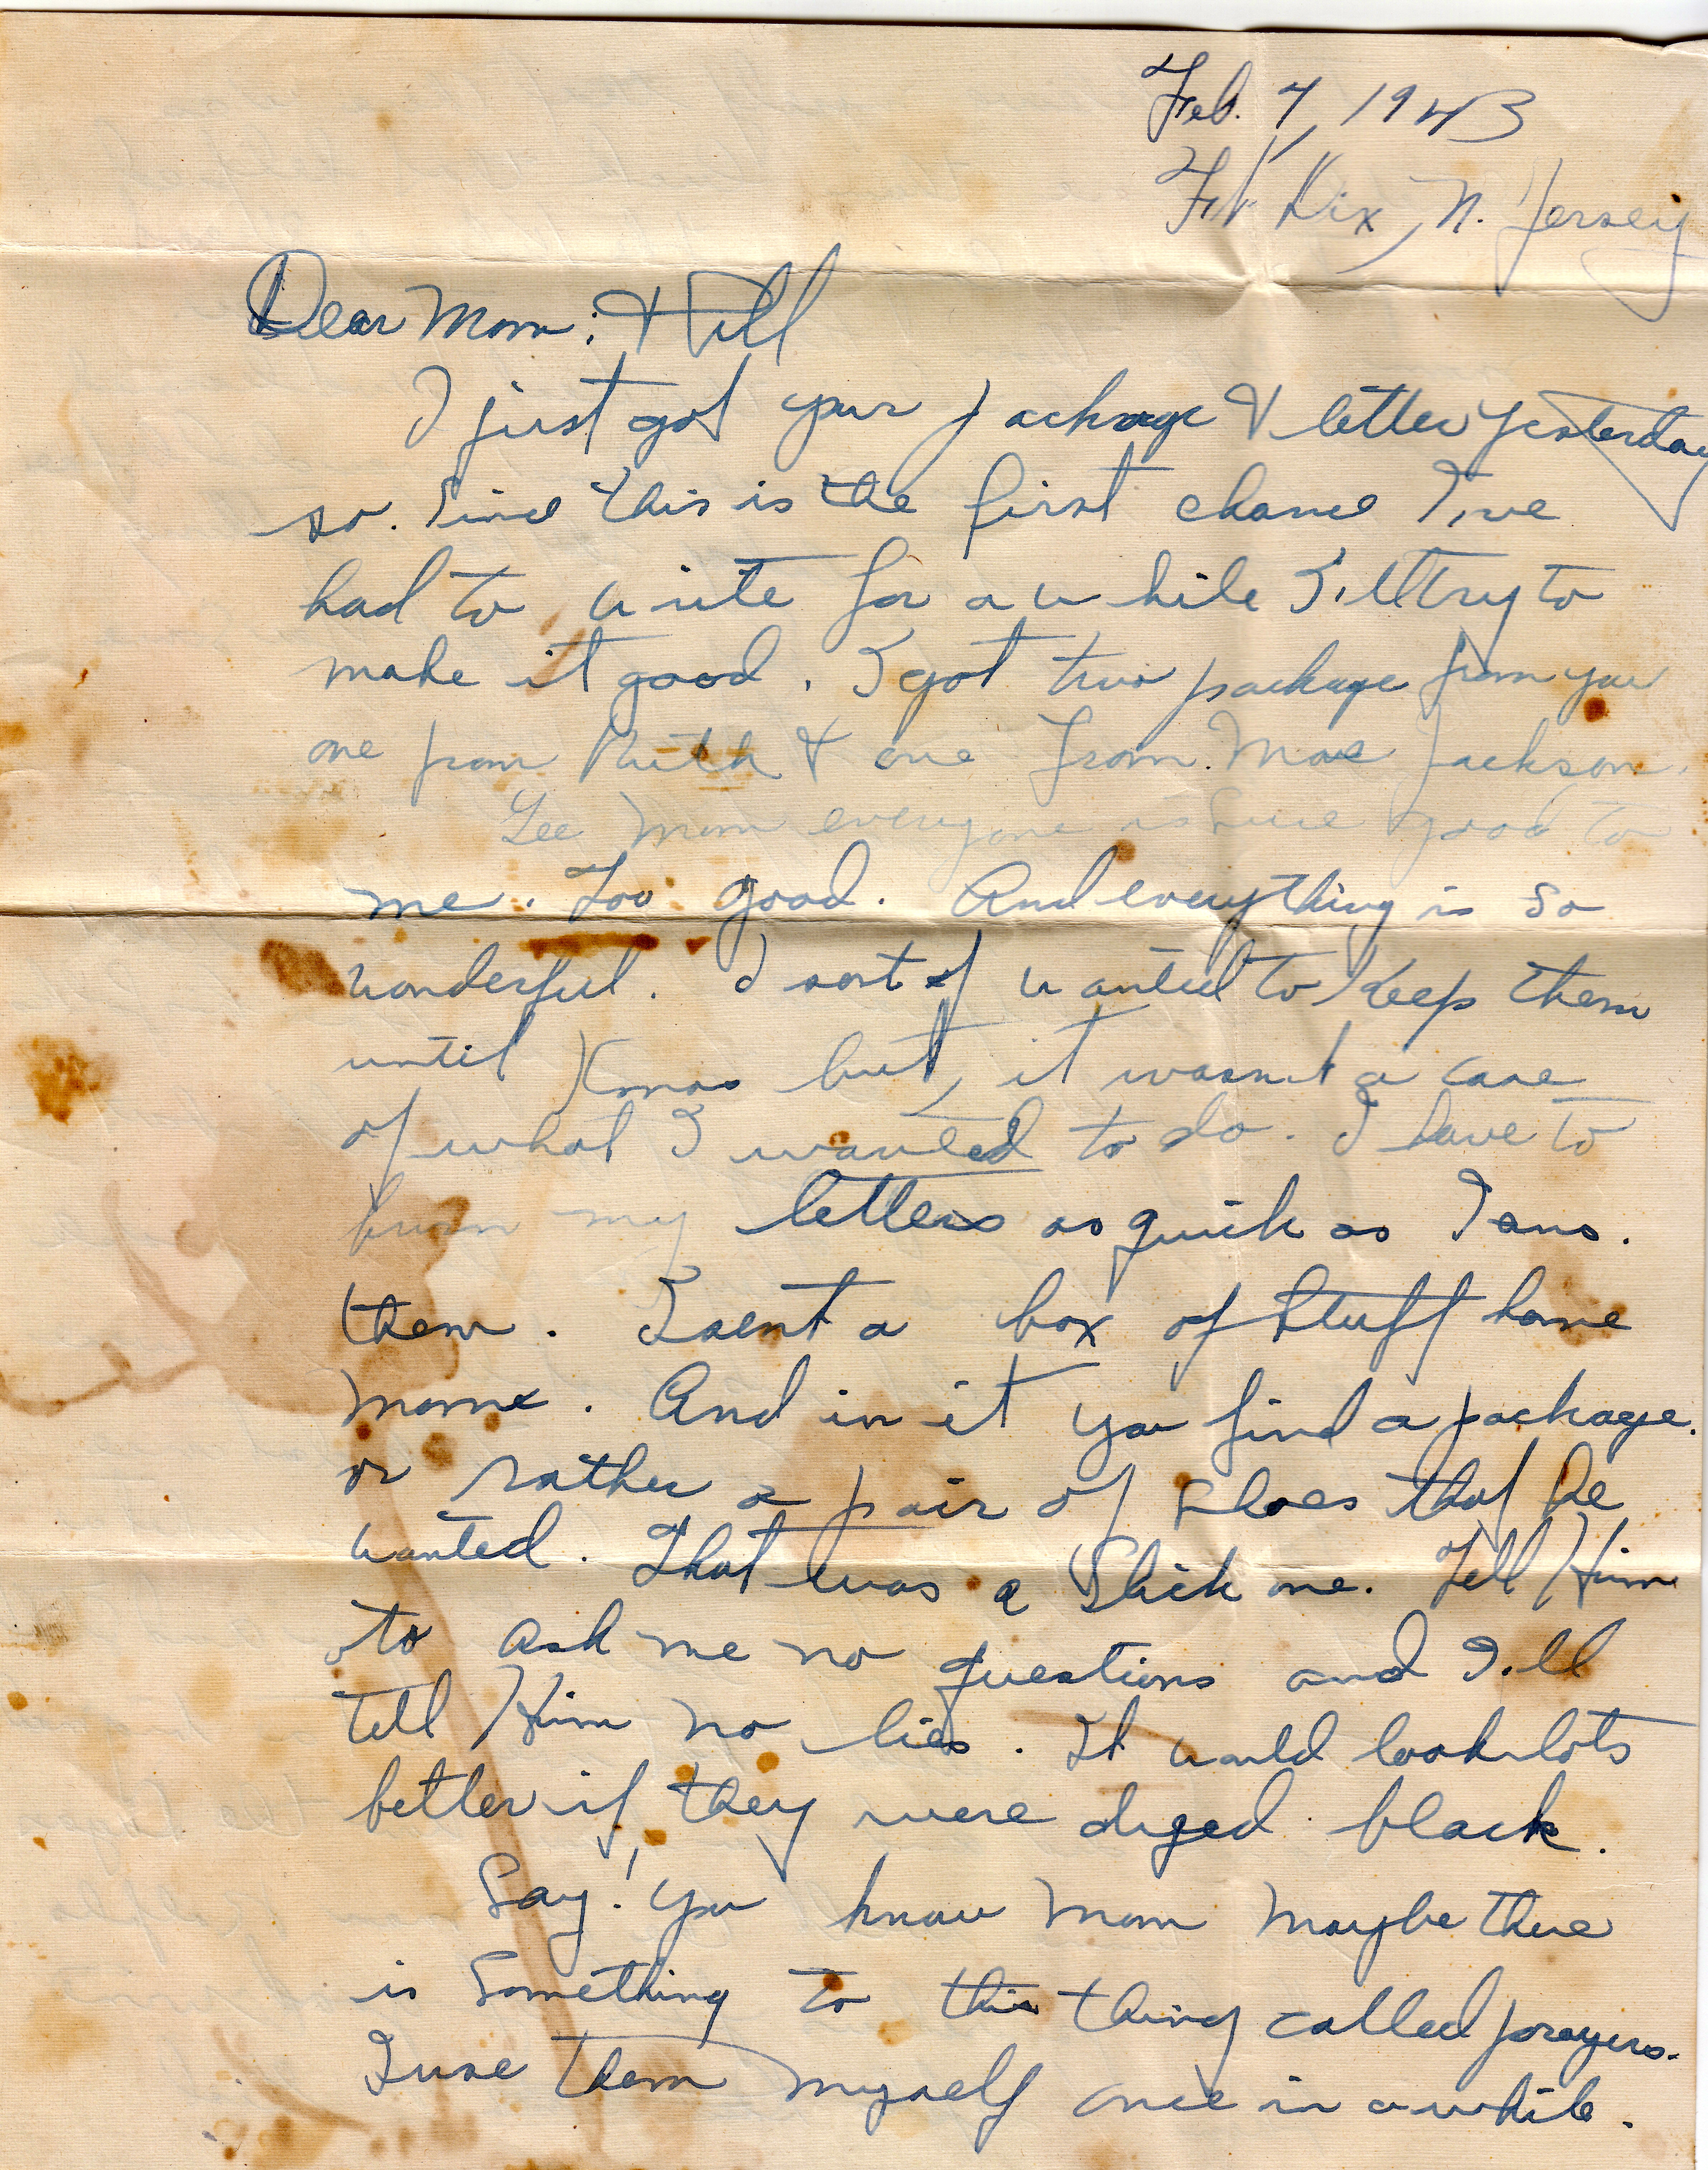 Feb. 7, 1943
Ft. Dix, N. Jersey
Dear Mom: & Hill
I just got your package & letter yesterday
so. Since this is the first chance I,ve
had to write for a while I,ll try to
make it good. I got two package from you
one from Ruth & one from Mae Jackson.
Gee Mom everyone is sure good to
me. Too good. And everything is so
wonderful. I sort of wanted to keep them
until Xmas but, it wasn't a case
of what I wanted to do. I have to
burn my letters as quick as I ans.
them. I sent a box of stuff home
Mome. And in it you find a package.
or rather a pair of shoes that he
wanted. That was a slick one. Tell Him
to ask me no questions and I.ll
tell Him no lies. It would look lots
better if they were dyed black.
Say! You know Mom maybe there
is something to this thing called prayers.
I use them myself once in a while.